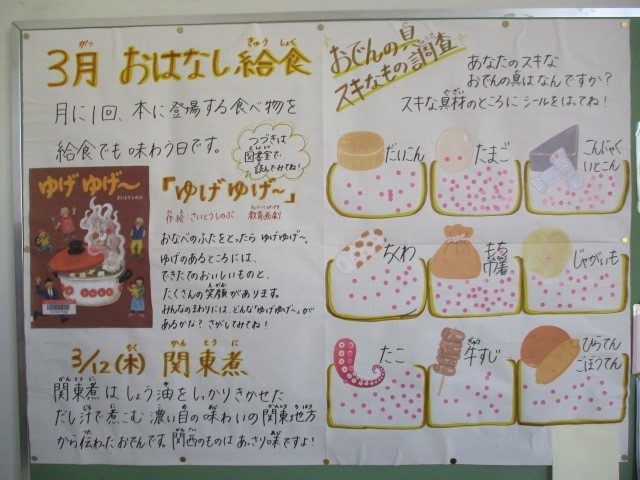 3月 おはなし給食
がつ きゅうしょく
月に1回、本に登場する食べ物を
給食でも味わう日です。
つづきは
図書室で
読んでみてね!
ゆげ ゆげ〜
さいとうしのぶ
「ゆげゆげ〜」
作・絵:さいとうしのぶ 教育画劇
おなべのふたをとったら ゆげゆげ〜。
ゆげのあるところには、
できたてのおいしいものと、
たくさんの笑顔があります。
みんなのまわりには、どんな「ゆげゆげ〜」が
あるかな? さがしてみてね!
3/12(木) 関東煮
もく かんとうに
関東煮はしょう油をしっかりきかせた
だし汁で煮こむ 濃い目の味わいの関東地方
から伝わったおでんです。関西のものはあっさり味ですよ!
おでんの具
スキなもの調査
あなたのスキな
おでんの具はなんですか?
スキな具材のところにシールをはってね!
だいこん
たまご
こんにゃく
いとこん
ちくわ
もち
巾着
じゃがいも
たこ
牛すじ
ひらてん
ごぼうてん